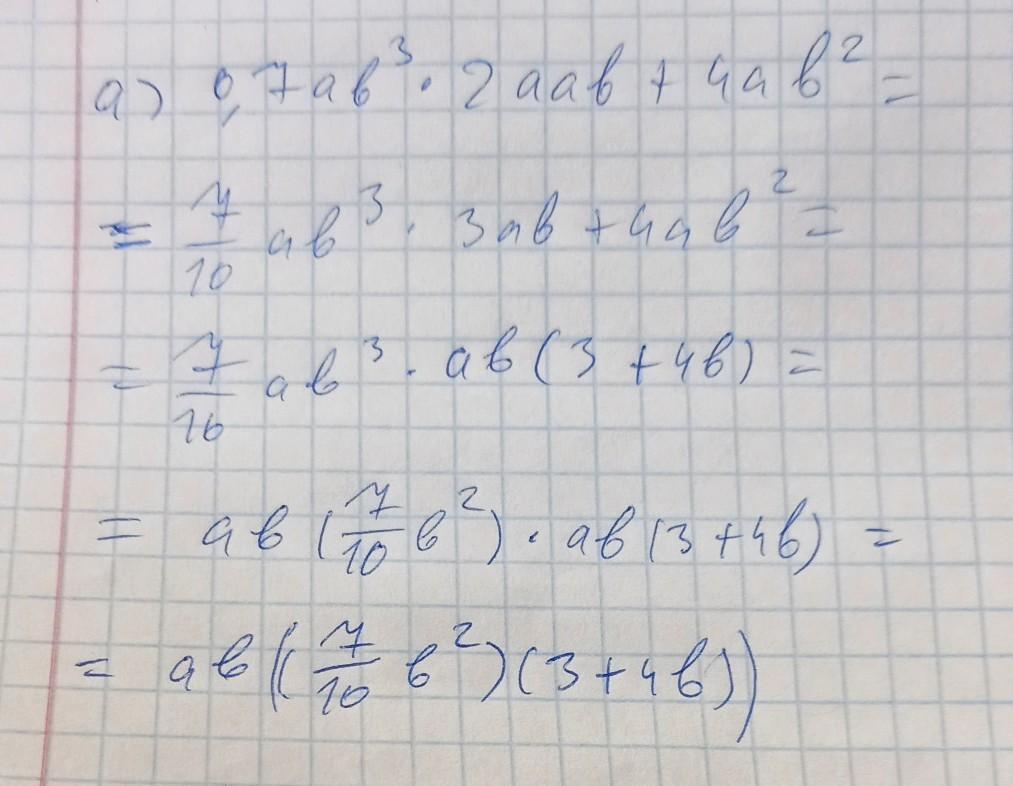 а) 0,7ab³ · 2aab + 4ab² =
= 7/10 ab³ · 3ab + 4ab² =
= 7/16 ab³ · ab(3 + 4b) =
= ab(7/10 b²) · ab(3 + 4b) =
= ab((7/10 b²)(3 + 4b))